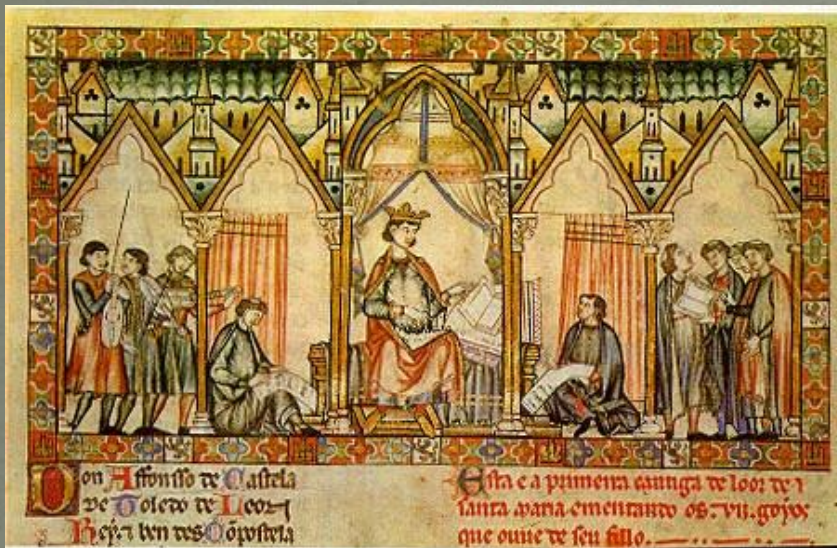 Don Affonsso de Castela
de Toledo de Leon
Rey ben des Cõpostela
Esta e a primeira cantiga de loor de
santa maria ementando os vii goyos
que ouue de seu fillo.